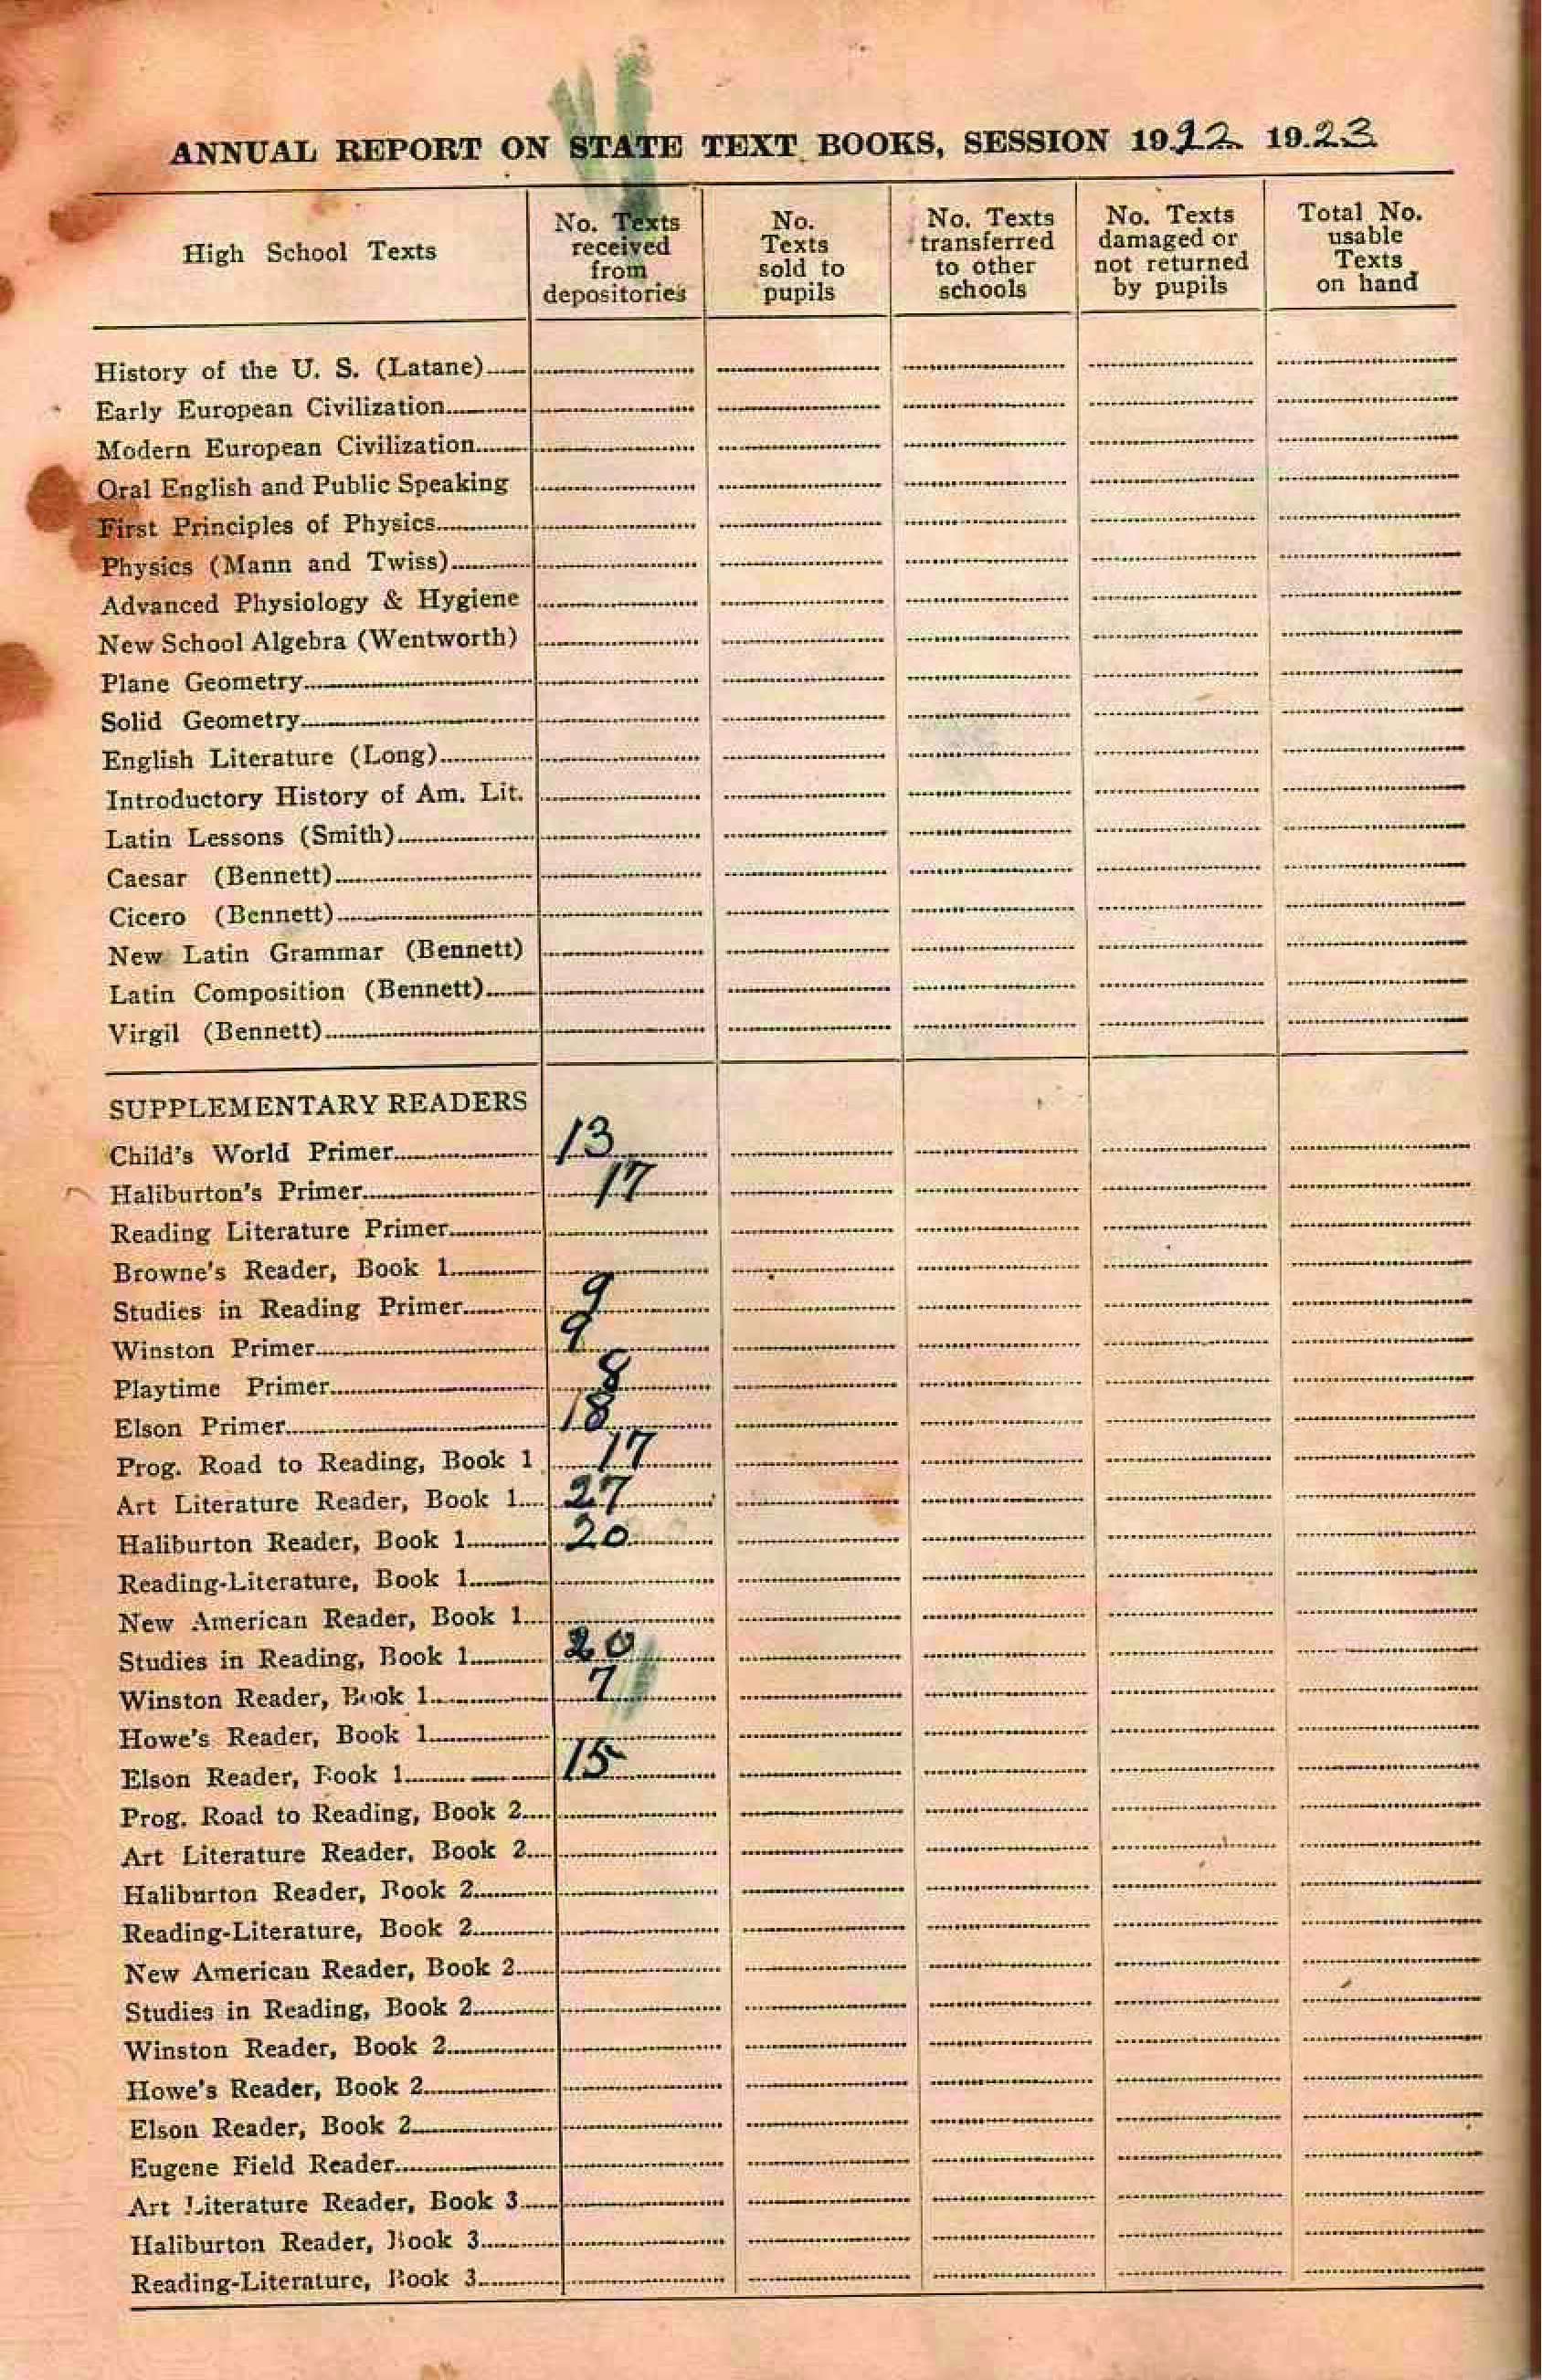 ANNUAL REPORT ON STATE TEXT BOOKS, SESSION 1922 1923
High School Texts
No. Texts received from depositories
No. Texts sold to pupils
No. Texts transferred to other schools
No. Texts damaged or not returned by pupils
Total No. usable Texts on hand
History of the U. S. (Latane)
Early European Civilization
Modern European Civilization
Oral English and Public Speaking
First Principles of Physics
Physics (Mann and Twiss)
Advanced Physiology & Hygiene
New School Algebra (Wentworth)
Plane Geometry
Solid Geometry
English Literature (Long)
Introductory History of Am. Lit.
Latin Lessons (Smith)
Caesar (Bennett)
Cicero (Bennett)
New Latin Grammar (Bennett)
Latin Composition (Bennett)
Virgil (Bennett)
SUPPLEMENTARY READERS
Child's World Primer 13
Haliburton's Primer 17
Reading Literature Primer
Browne's Reader, Book 1
Studies in Reading Primer 9
Winston Primer 9
Playtime Primer 8
Elson Primer 18
Prog. Road to Reading, Book 1 17
Art Literature Reader, Book 1 27
Haliburton Reader, Book 1 20
Reading-Literature, Book 1
New American Reader, Book 1
Studies in Reading, Book 1 20
Winston Reader, Book 1 7
Howe's Reader, Book 1
Elson Reader, Book 1 15
Prog. Road to Reading, Book 2
Art Literature Reader, Book 2
Haliburton Reader, Book 2
Reading-Literature, Book 2
New American Reader, Book 2
Studies in Reading, Book 2
Winston Reader, Book 2
Howe's Reader, Book 2
Elson Reader, Book 2
Eugene Field Reader
Art Literature Reader, Book 3
Haliburton Reader, Book 3
Reading-Literature, Book 3